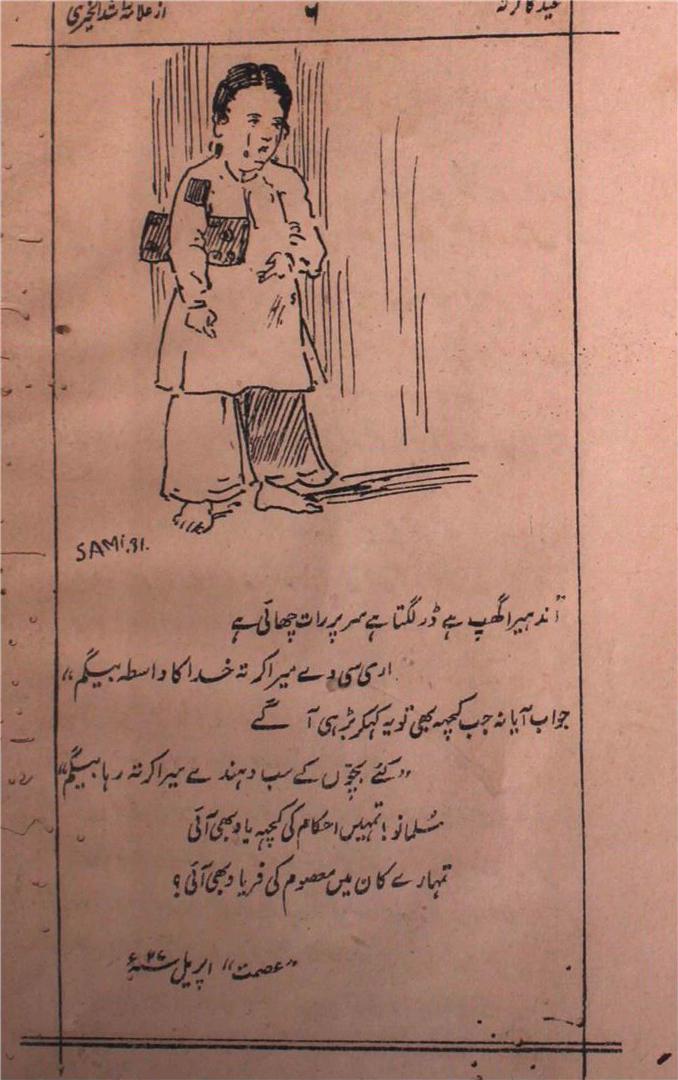 عید کا کرتہ
۶
از علامہ راشد الخیری
SAMI.31.
"اندہیرا گھپ ہے ڈر لگتا ہے سر پر رات چھائی ہے
اری سی دے میرا کرتہ خدا کا واسطہ بیگم"
جواب آیا نہ جب کچہہ بھی تو یہ کہکر بڑہی آگے
"کئے بچّوں کے سب دہندے میرا کرتہ رہا بیگم"
مُسلمانو! تمہیں احکام کی کچہہ یاد بھی آئی
تمہارے کان میں معصوم کی فریاد بھی آئی؟
"عصمت" اپریل سنہ ۲۶ء